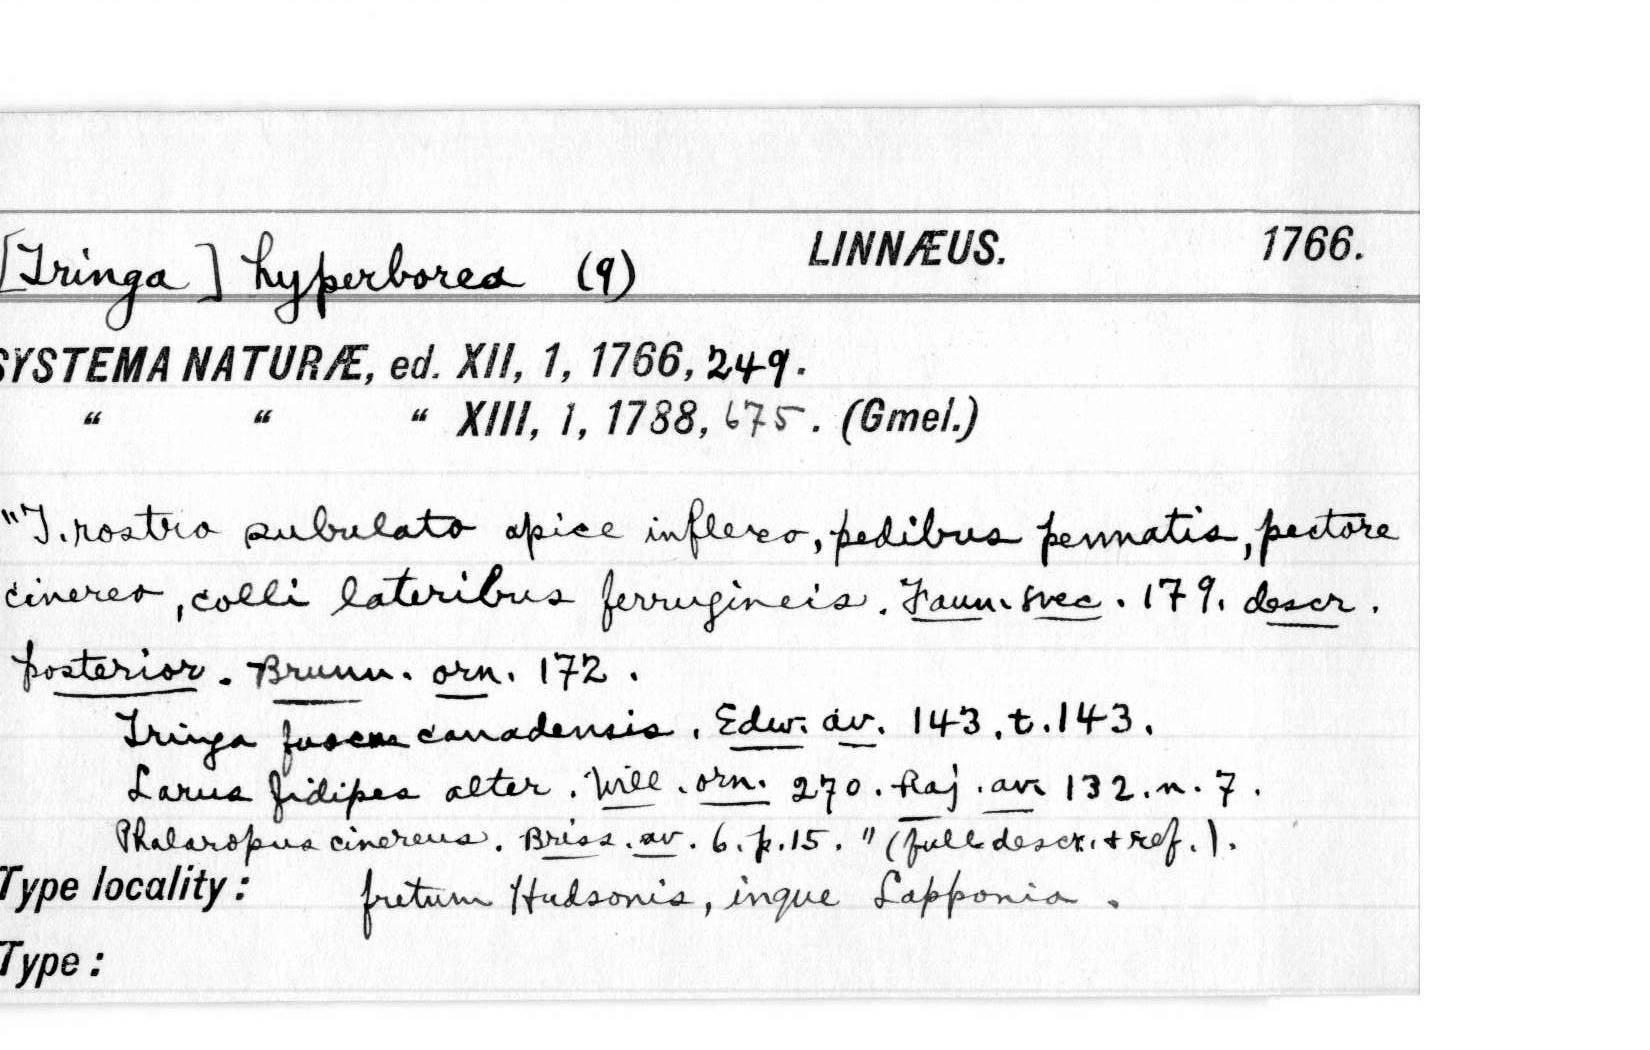 [Tringa] hyperborea (9) LINNÆUS. 1766.
SYSTEMA NATURÆ, ed. XII, 1, 1766, 249.
“ “ “ XIII, 1, 1788, 675. (Gmel.)
"T. rostro subulato apice inflexo, pedibus pennatis, pectore
cinereo, colli lateribus ferrugineis. Faun. svec. 179. descr.
posterior. Brunn. orn. 172.
Tringa fusca canadensis. Edw. av. 143. t. 143.
Larus fidipes alter. Will. orn. 270. Raj. av. 132. n. 7.
Phalaropus cinereus. Briss. av. 6. p. 15. " (full descr. + ref.).
Type locality: fretum Hudsonis, inque Lapponia.
Type: